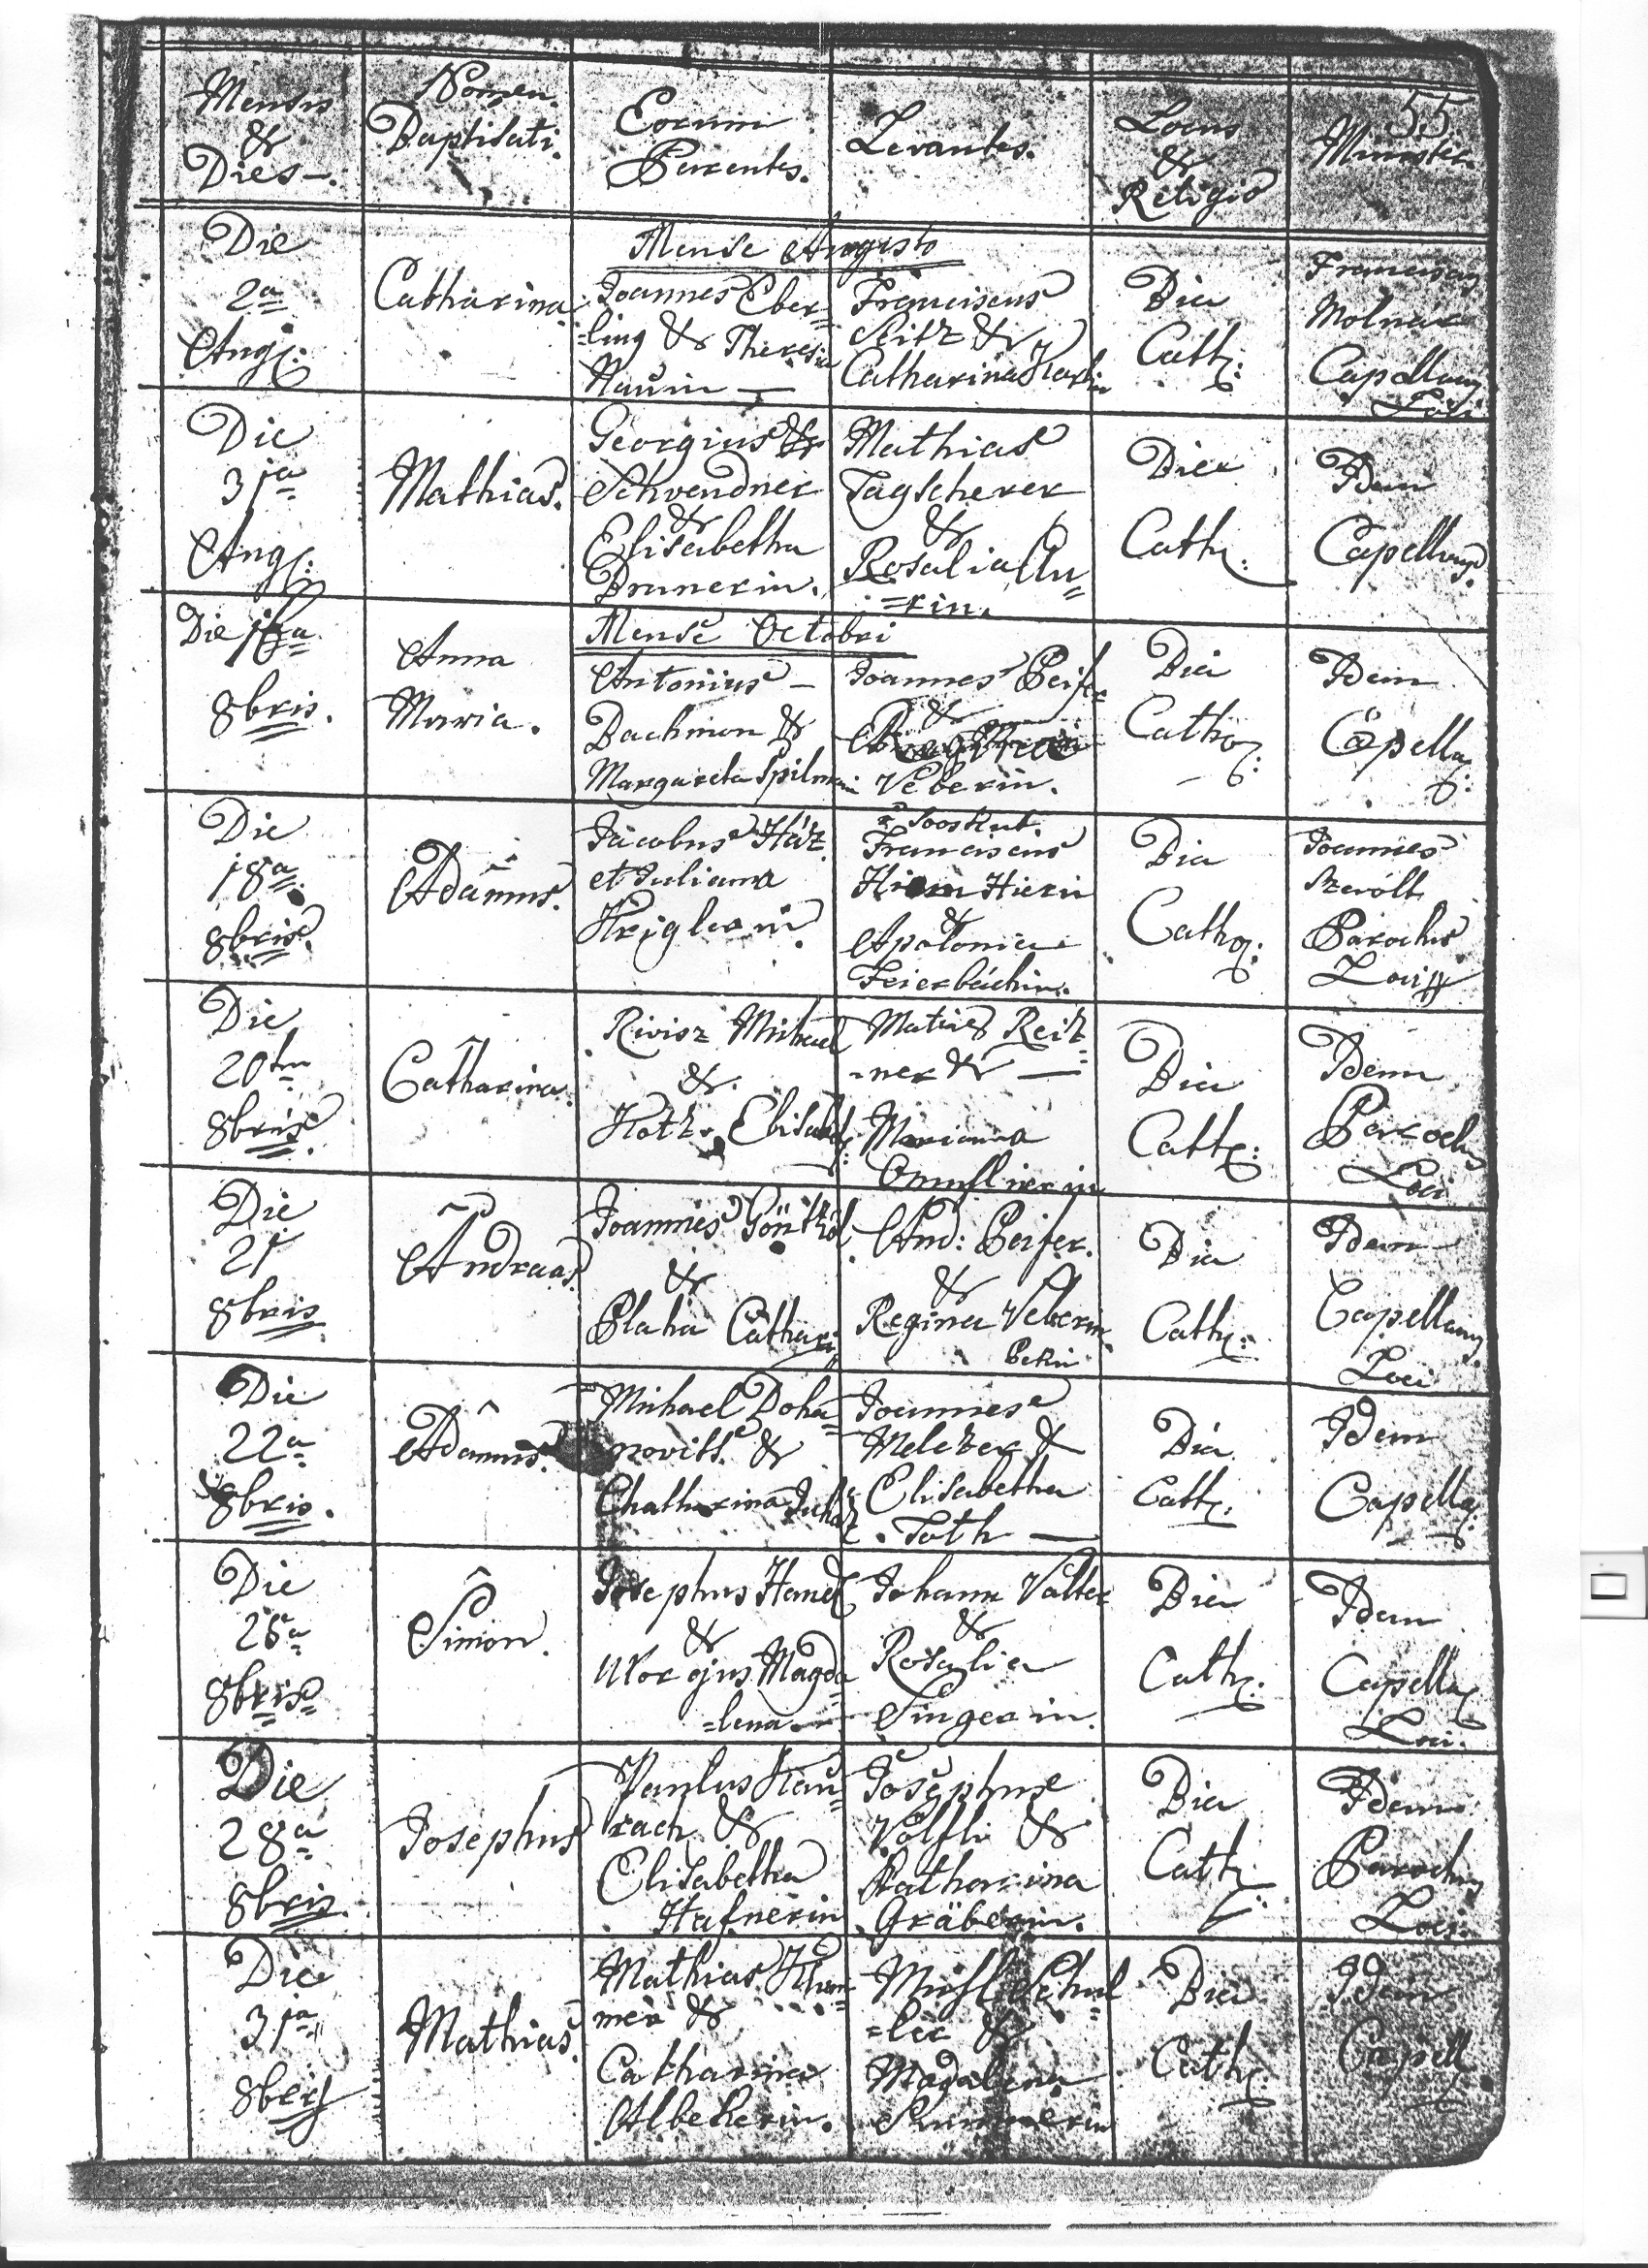 55
Mensis
&
Dies
Nomen
Baptisati.
Eorum
Parentes.
Levantes.
Locus
&
Religio
Minister.
Mense Augusto
Die
2a
Aug:
Catharina
Joannes Eber=
=ling & Theresia
Naūin —
Franciscus
Seitz &
Catharina
Dia
Cath:
Franciscus
Molnar
Capellanus
Loci
Die
31a
Aug:
Mathias.
Georgius
Schvendner
&
Elisabetha
Brunerin.
Mathias
Tagscherer
&
Rosalia
=rin.
Dia
Cath:
Idem
Capellanus.
Mense Octobri
Die 16a
8bris.
Anna
Maria.
Antonius —
Bachmon &
Margareta Spilman
Joannes Peifer
&
Veberin.
Dia
Catho:
Idem
Capella:
Die
18a
8bris.
Adāmus.
Jacobus Ház
et Juliana
Kriglerin.
Franciscus
Hierin
&
Apolonia
Feierbáchin.
Dia
Catho:
Joannes
Parochus
Loci
Die
20
8bris.
Catharina.
Rivisz Michael
&
Hotz. Elisabeth:
Matias Reit=
=ner & —
Marianna
Dia
Cath:
Idem
Parochus
Loci
Die
21
8bris
Andreas
Joannes
&
Blaha Cathari
And: Peifer.
&
Regina Veberin
Dia
Cath:
Idem
Capellanus
Loci
Die
22a
8bris.
Adamus.
Michael Doha=
=novits &
Chatharina Juhaz
Joannes
Melczer &
Elisabetha
Toth —
Dia
Cath:
Idem
Capella:
Die
26a
8bris
Simon.
Josephus
&
Uxor ejus Magda
=lena
Johann Valter
&
Rosalia
Singerin.
Dia
Cath:
Idem
Capella:
Loci.
Die
28a
8bris.
Josephus
Paulus Hau=
rach &
Elisabetha
Hafnerin
Josephus
Völfli &
Katharina
Gräberin.
Dia
Cath:
Idem
Parochus
Loci.
Die
31a
8bris
Mathias.
Mathias
mer &
Catharina
Albekerin.
Schul=
=ler &
Magdalena
Dia
Cath:
Idem
Capell